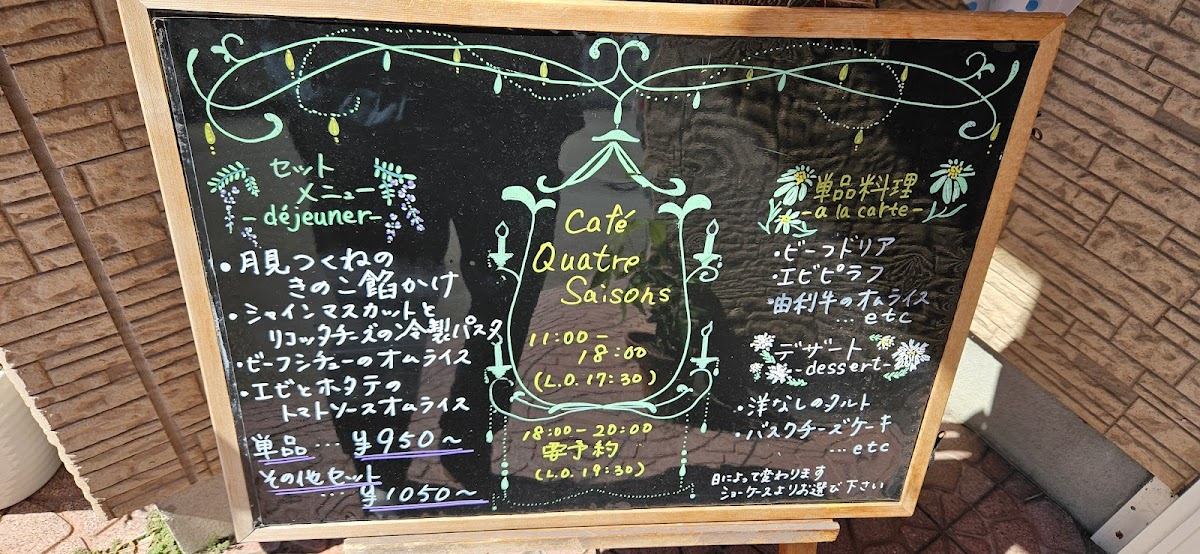 セット
メニュー
-déjeuner-
・月見つくねの
きのこ餡かけ
・シャインマスカットと
リコッタチーズの冷製パスタ
・ビーフシチューのオムライス
・エビとホタテの
トマトソースオムライス
単品…¥950〜
その他セット
…¥1050〜
Café
Quatre
Saisons
11:00-
18:00
(L.O.17:30)
18:00-20:00
要予約
(L.O.19:30)
単品料理
-a la carte-
・ビーフドリア
・エビピラフ
・由利牛のオムライス
…etc
デザート
-dessert-
・洋なしのタルト
・バスクチーズケーキ
…etc
日によって変わります
ショーケースよりお選び下さい